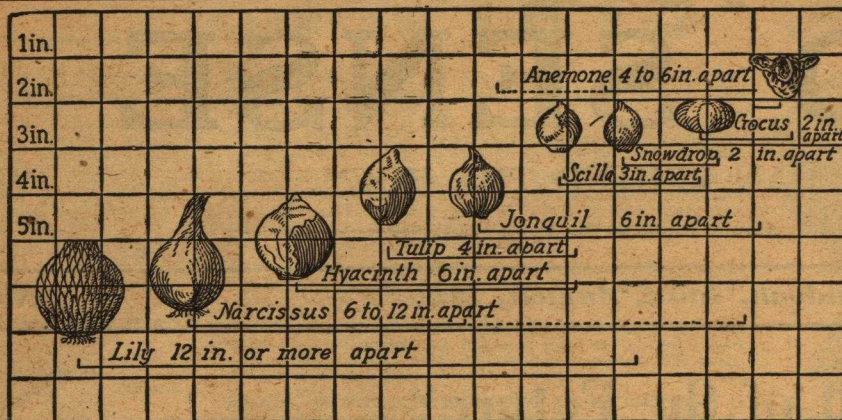 1in.
2in.
3in.
4in.
5in.
Anemone 4 to 6in. apart
Crocus 2in. apart
Snowdrop, 2 in. apart
Scilla 3in. apart
Jonquil 6in apart
Tulip 4 in. apart
Hyacinth 6in. apart
Narcissus 6 to 12 in. apart
Lily 12 in. or more apart